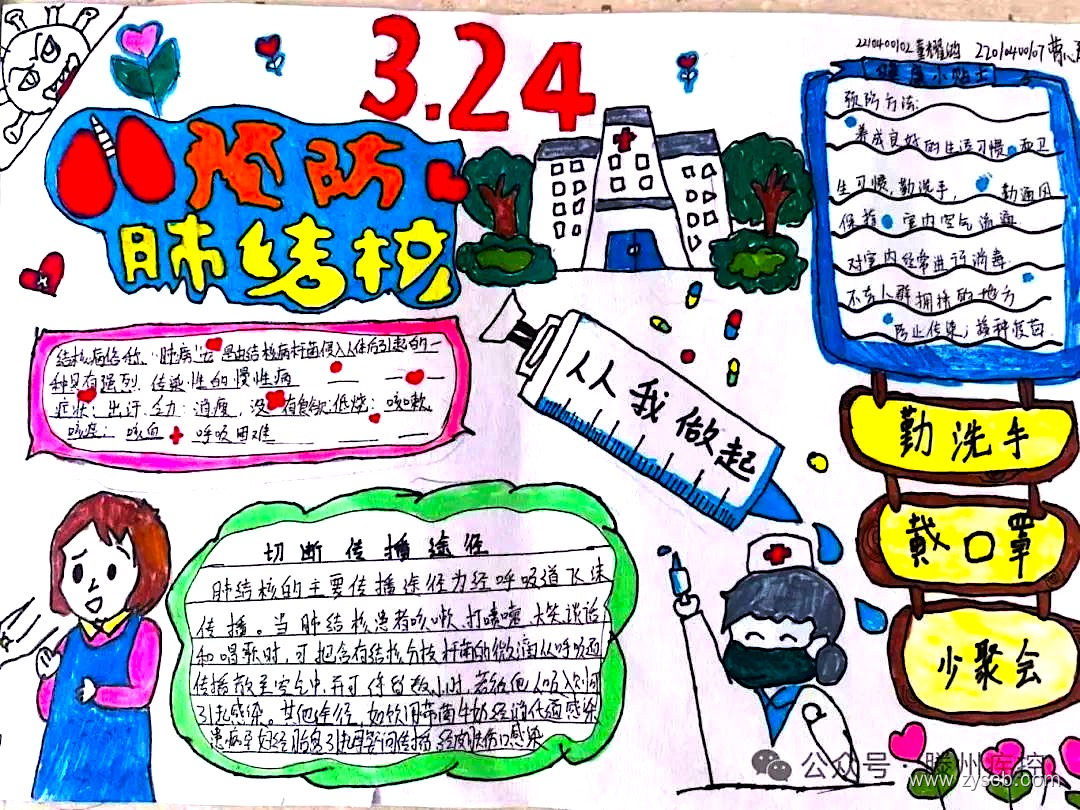 3.24
2210400102 董耀鸿 2201400107
预防
肺结核
健康小贴士
预防方法:
养成良好的生活习惯 和卫
生习惯,勤洗手, 勤通风
保持 室内空气流通
对室内经常进行消毒
不去人群拥挤的地方
防止传染;接种疫苗
结核病俗称,"肺痨"它 是由结核病杆菌侵入人体后引起的一
种具有强烈 传染性的慢性病
症状:出汗 乏力 消瘦, 没有食欲 低烧; 咳嗽,
咳痰; 咳血 呼吸困难
人人我做起
勤洗手
戴口罩
少聚会
切断传播途径
肺结核的主要传播途径为经呼吸道飞沫
传播。当肺结核患者咳嗽、打喷嚏、大笑、谈话
和唱歌时,可把含有结核分枝杆菌的微滴从呼吸
传播散至空气中,并可停留数小时,若被他人吸入
引起感染。其他途径,如饮用带菌牛奶经消化道感染
患病孕妇经胎盘引起母婴间传播 经皮肤伤口感染
公众号·滕州疾控
www.zyscb.com